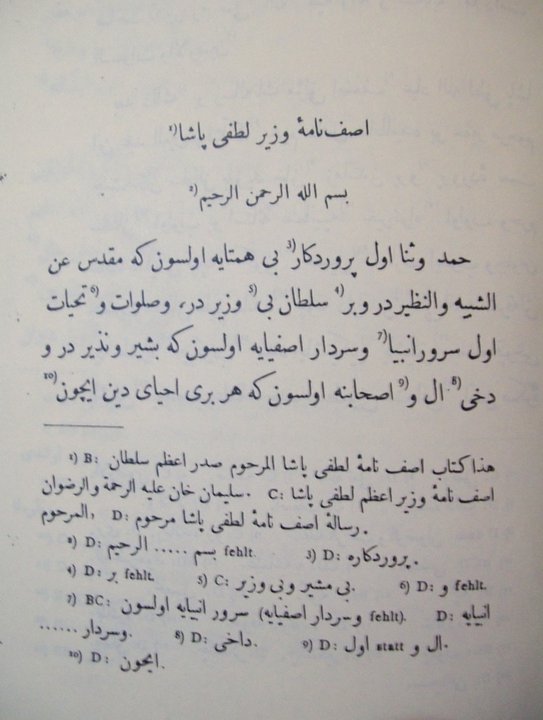 اصف‌نامۀ وزیر لطفی پاشا¹⁾
بسم الله الرحمن الرحیم²⁾
حمد وثنا اول پروردکار³⁾ بی همتایه اولسون که مقدس عن
الشبیه والنظیر در وبر⁴⁾ سلطان بی⁵⁾ وزیر در، وصلوات و⁶⁾ تحیات
اول سرورانبیا⁷⁾ وسردار اصفیایه اولسون که بشیر ونذیر در و
دخی⁸⁾ ال و⁹⁾ اصحابنه اولسون که هر بری احیای دین ایچون¹⁰⁾
¹⁾ B: هذا کتاب اصف نامۀ لطفی پاشا المرحوم صدر اعظم سلطان
سلیمان خان علیه الرحمة والرضوان. C: اصف نامۀ وزیر اعظم لطفی پاشا
المرحوم, D: رسالۀ اصف نامۀ لطفی پاشا مرحوم.
²⁾ D: بسم ..... الرحیم fehlt. ³⁾ D: پروردکاره.
⁴⁾ D: بر fehlt. ⁵⁾ C: بی مشیر وبی وزیر. ⁶⁾ D: و fehlt.
⁷⁾ BC: سرور انبیایه اولسون (وسردار اصفیایه fehlt). D: انبیایه
وسردار ...... ⁸⁾ D: داخی. ⁹⁾ D: اول statt ال و.
¹⁰⁾ D: ایجون.